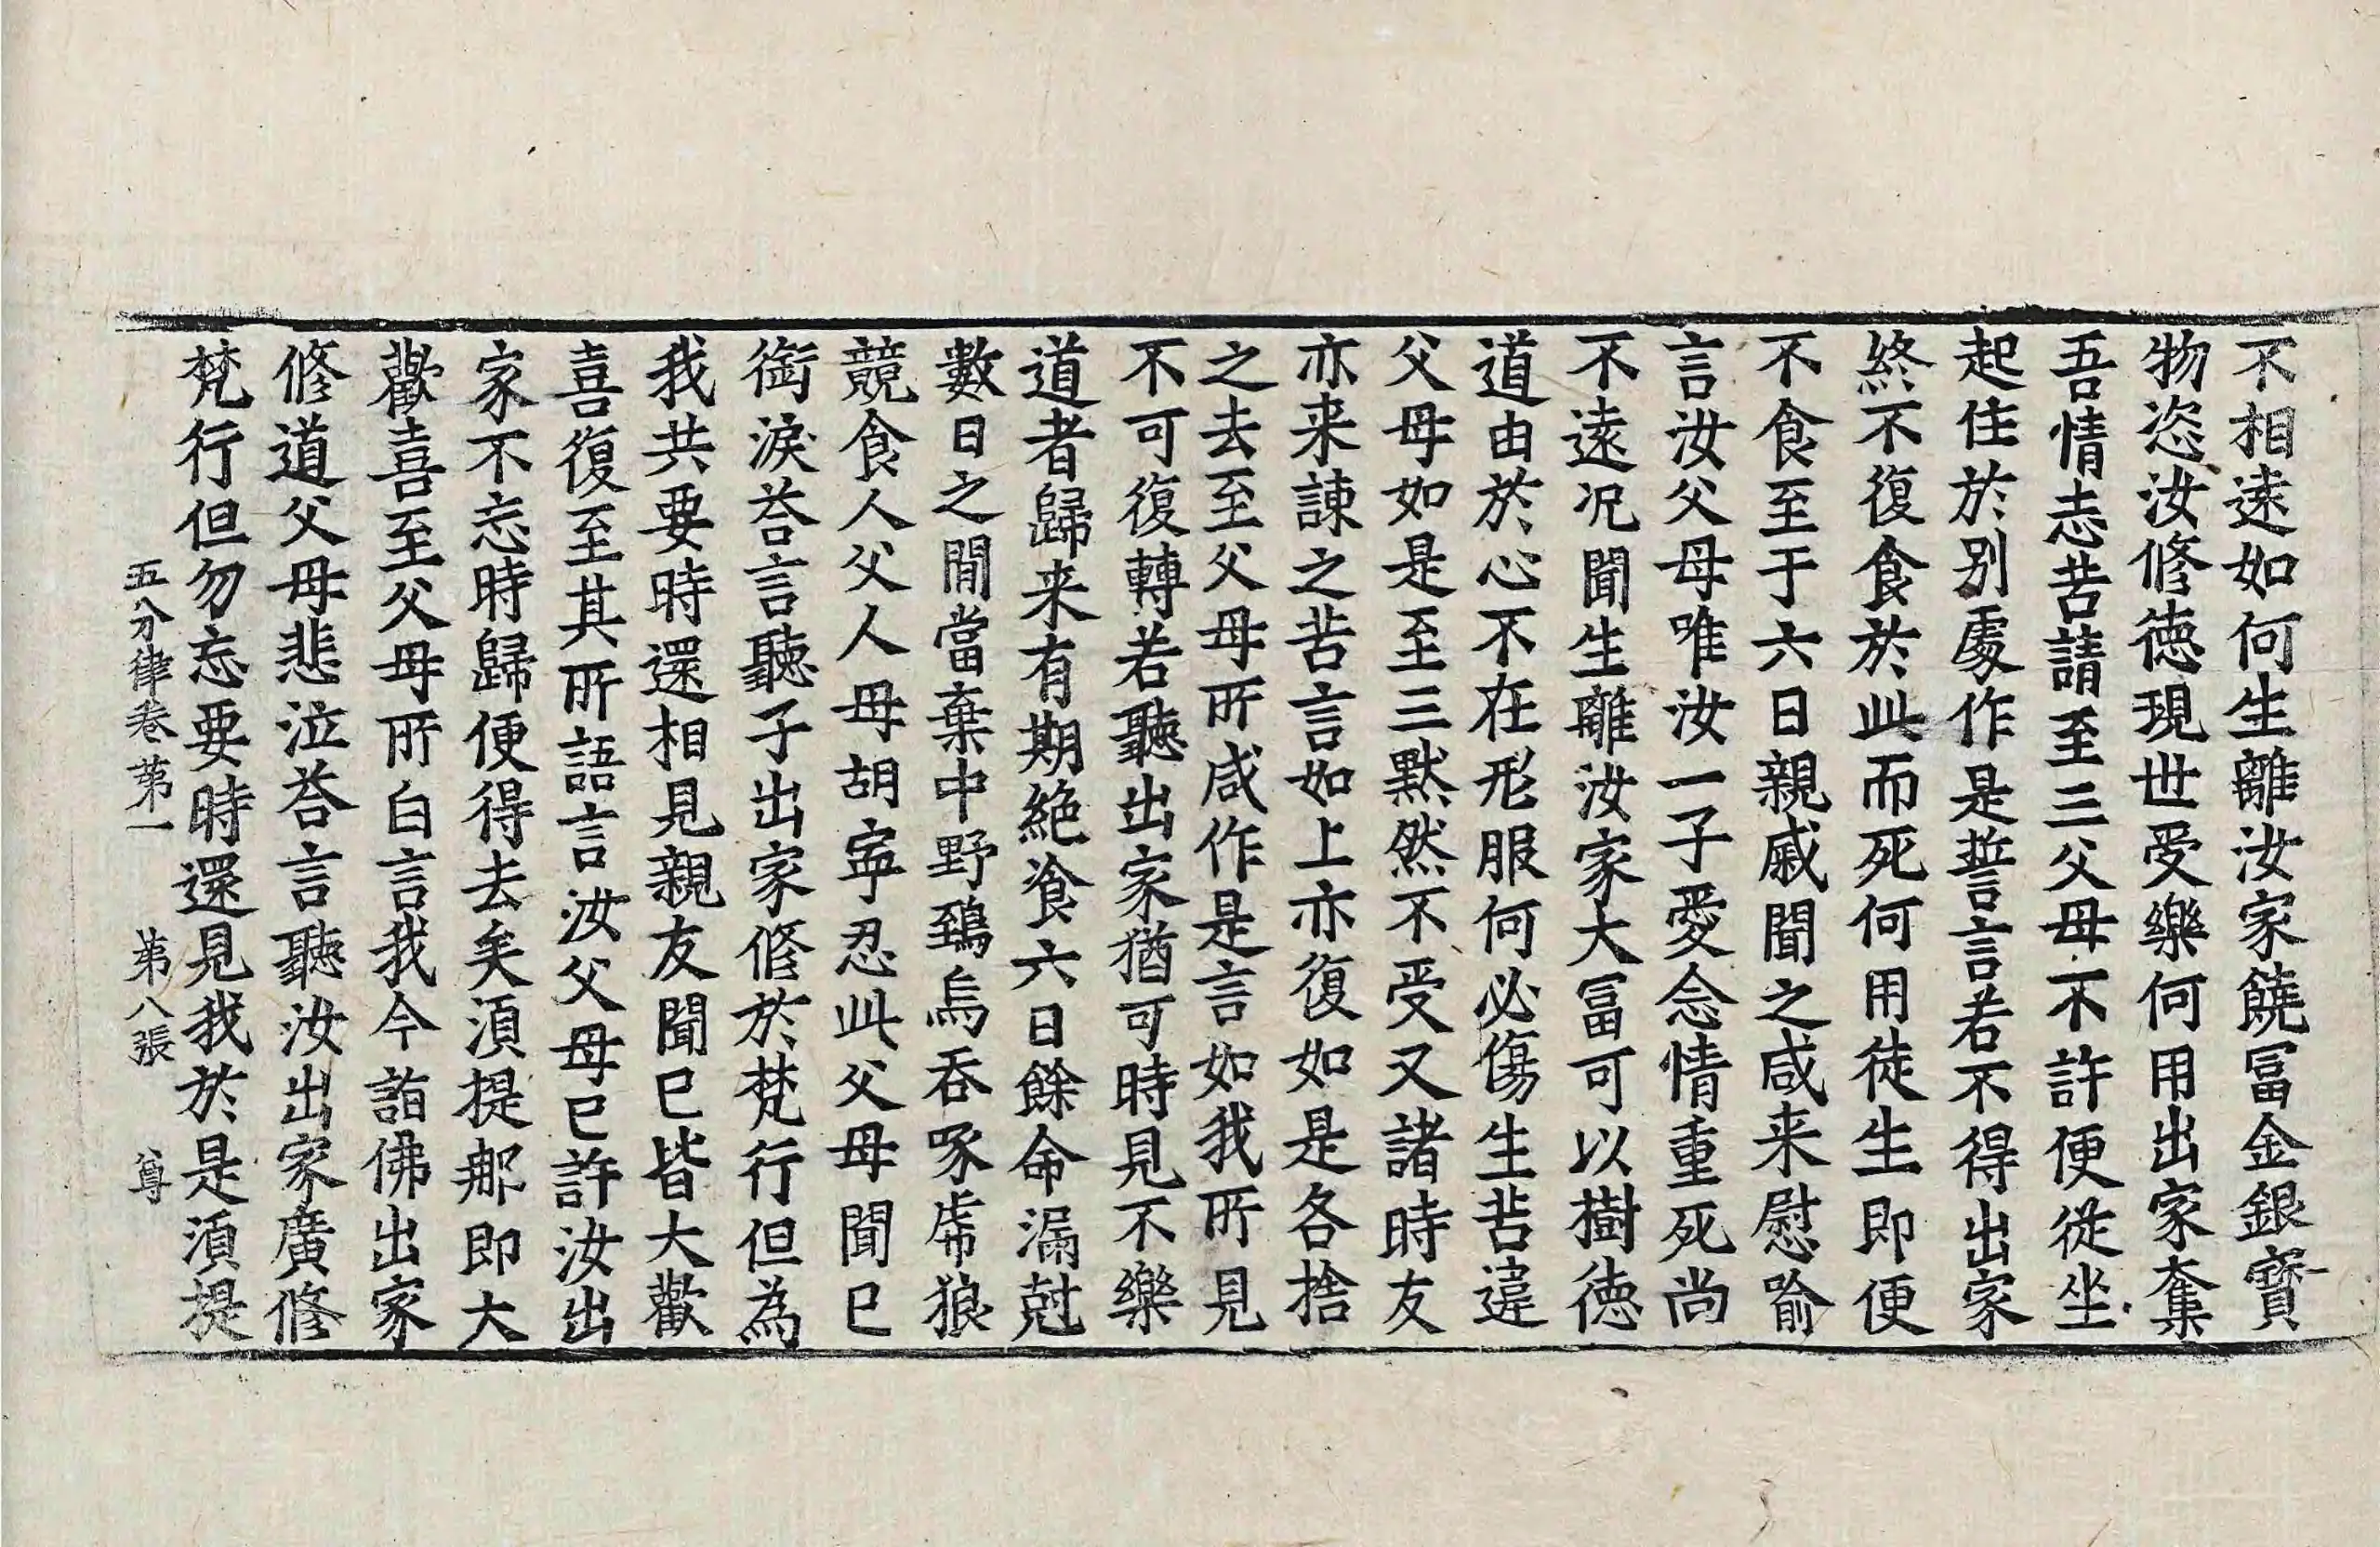 不相遠如何生離汝家饒冨金銀寶
物恣汝修徳現世受樂何用出家奪
吾情志苦請至三父母不許便從坐
起住於别處作是誓言若不得出家
終不復食於此而死何用徒生即便
不食至于六日親戚聞之咸来慰喻
言汝父母唯汝一子愛念情重死尚
不遠况聞生離汝家大冨可以樹徳
道由於心不在形服何必傷生苦違
父母如是至三默然不受又諸時友
亦来諫之苦言如上亦復如是各捨
之去至父母所咸作是言如我所見
不可復轉若聽出家猶可時見不樂
道者歸来有期絶飡六日餘命漏尅
數日之閒當棄中野鵄烏吞啄虎狼
競食人父人母胡寜忍此父母聞已
銜淚荅言聽子出家修於梵行但為
我共要時還相見親友聞已皆大歡
喜復至其所語言汝父母已許汝出
家不忘時歸便得去矣湏提那即大
歡喜至父母所白言我今詣佛出家
修道父母悲泣荅言聽汝出家廣修
梵行但勿忘要時還見我於是湏提
五分律卷苐一　苐八張　尊